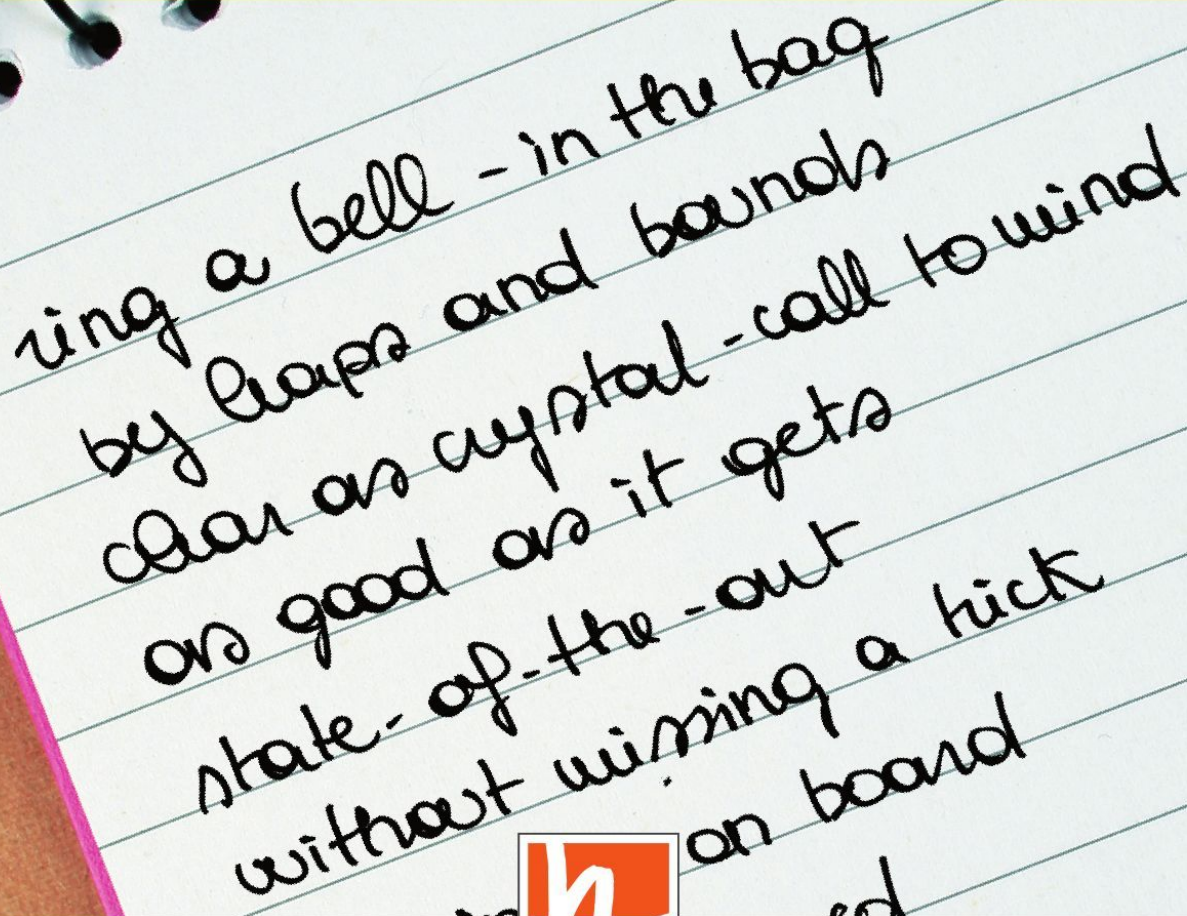 ring a bell - in the bag
by leaps and bounds
clear as crystal - call to mind
as good as it gets
state-of-the-art
without missing a trick
on board